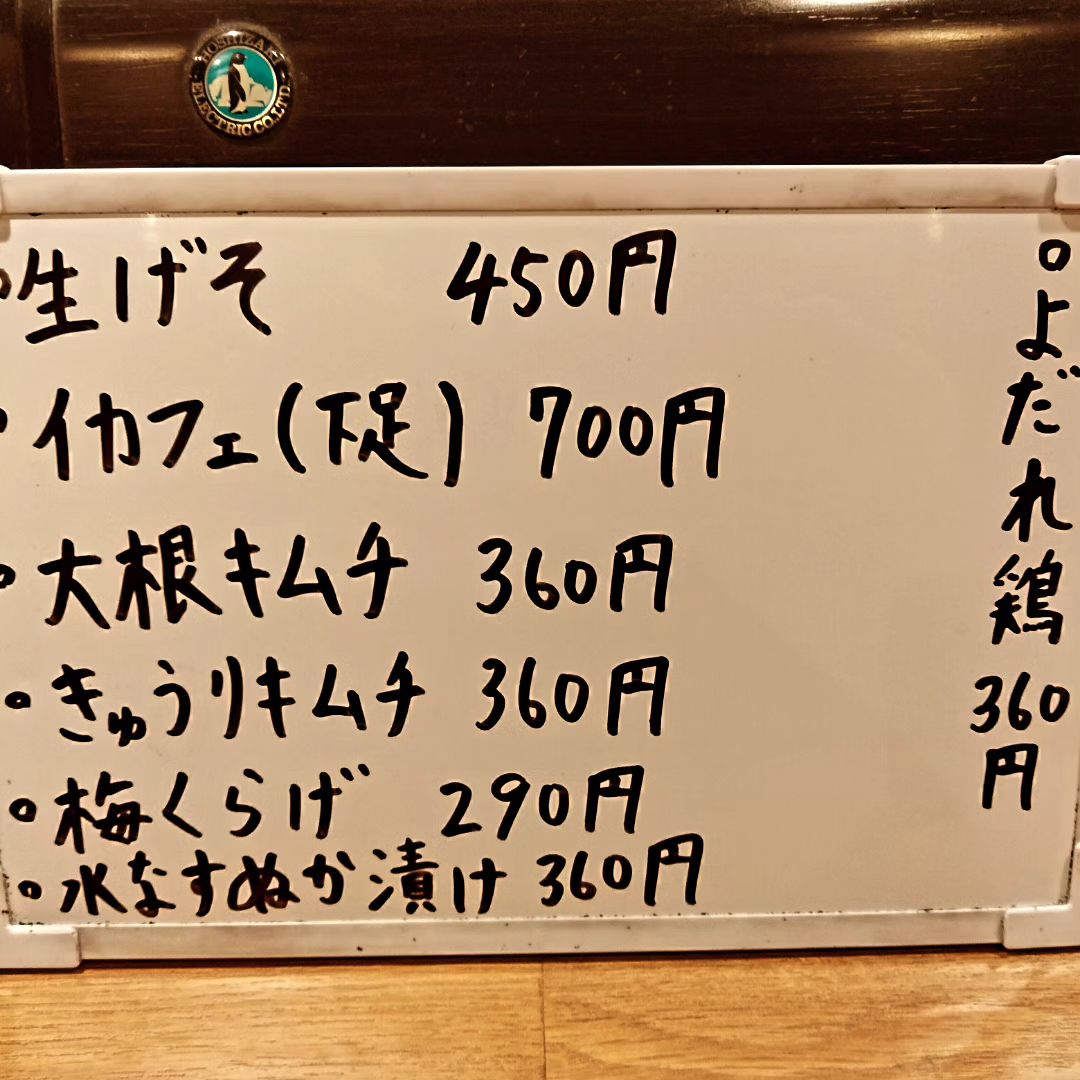 HOSHIZAKI
ELECTRIC CO.,LTD.
○生げそ 450円
○イカフェ(下足) 700円
○大根キムチ 360円
○きゅうりキムチ 360円
○梅くらげ 290円
○水なすぬか漬け 360円
○よだれ鶏 360円